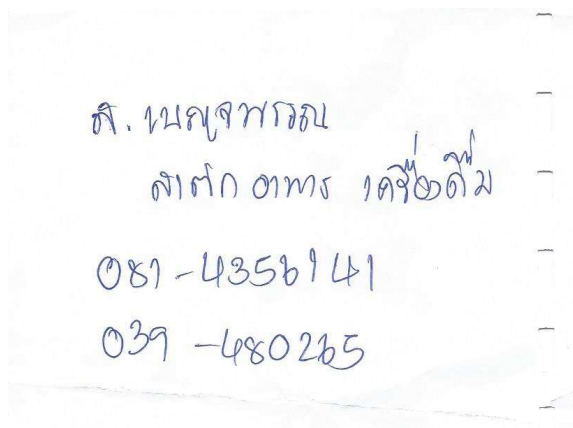 ส. เบญจพรรณ
สาตก อาหาร เครื่องดื่ม
081-4356141
039-480265